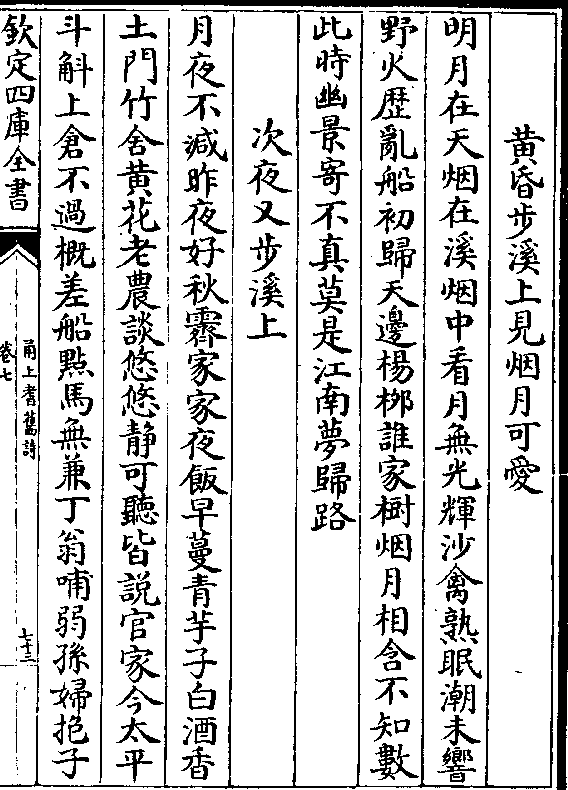 黄昏步溪上見烟月可愛
明月在天烟在溪烟中看月無光輝沙禽熟眠潮未響
野火歴亂船初歸天邊楊桞誰家樹烟月相含不知數
此時幽景寄不真莫是江南夢歸路
次夜又步溪上
月夜不減昨夜好秋霽家家夜飯早蔓青芋子白酒香
土門竹舍黄花老農談悠悠静可聽皆説官家今太平
斗斛上倉不過概差船點馬無兼丁翁哺弱孫婦抱子
欽定四庫全書
甬上耆舊詩
卷七
七十三